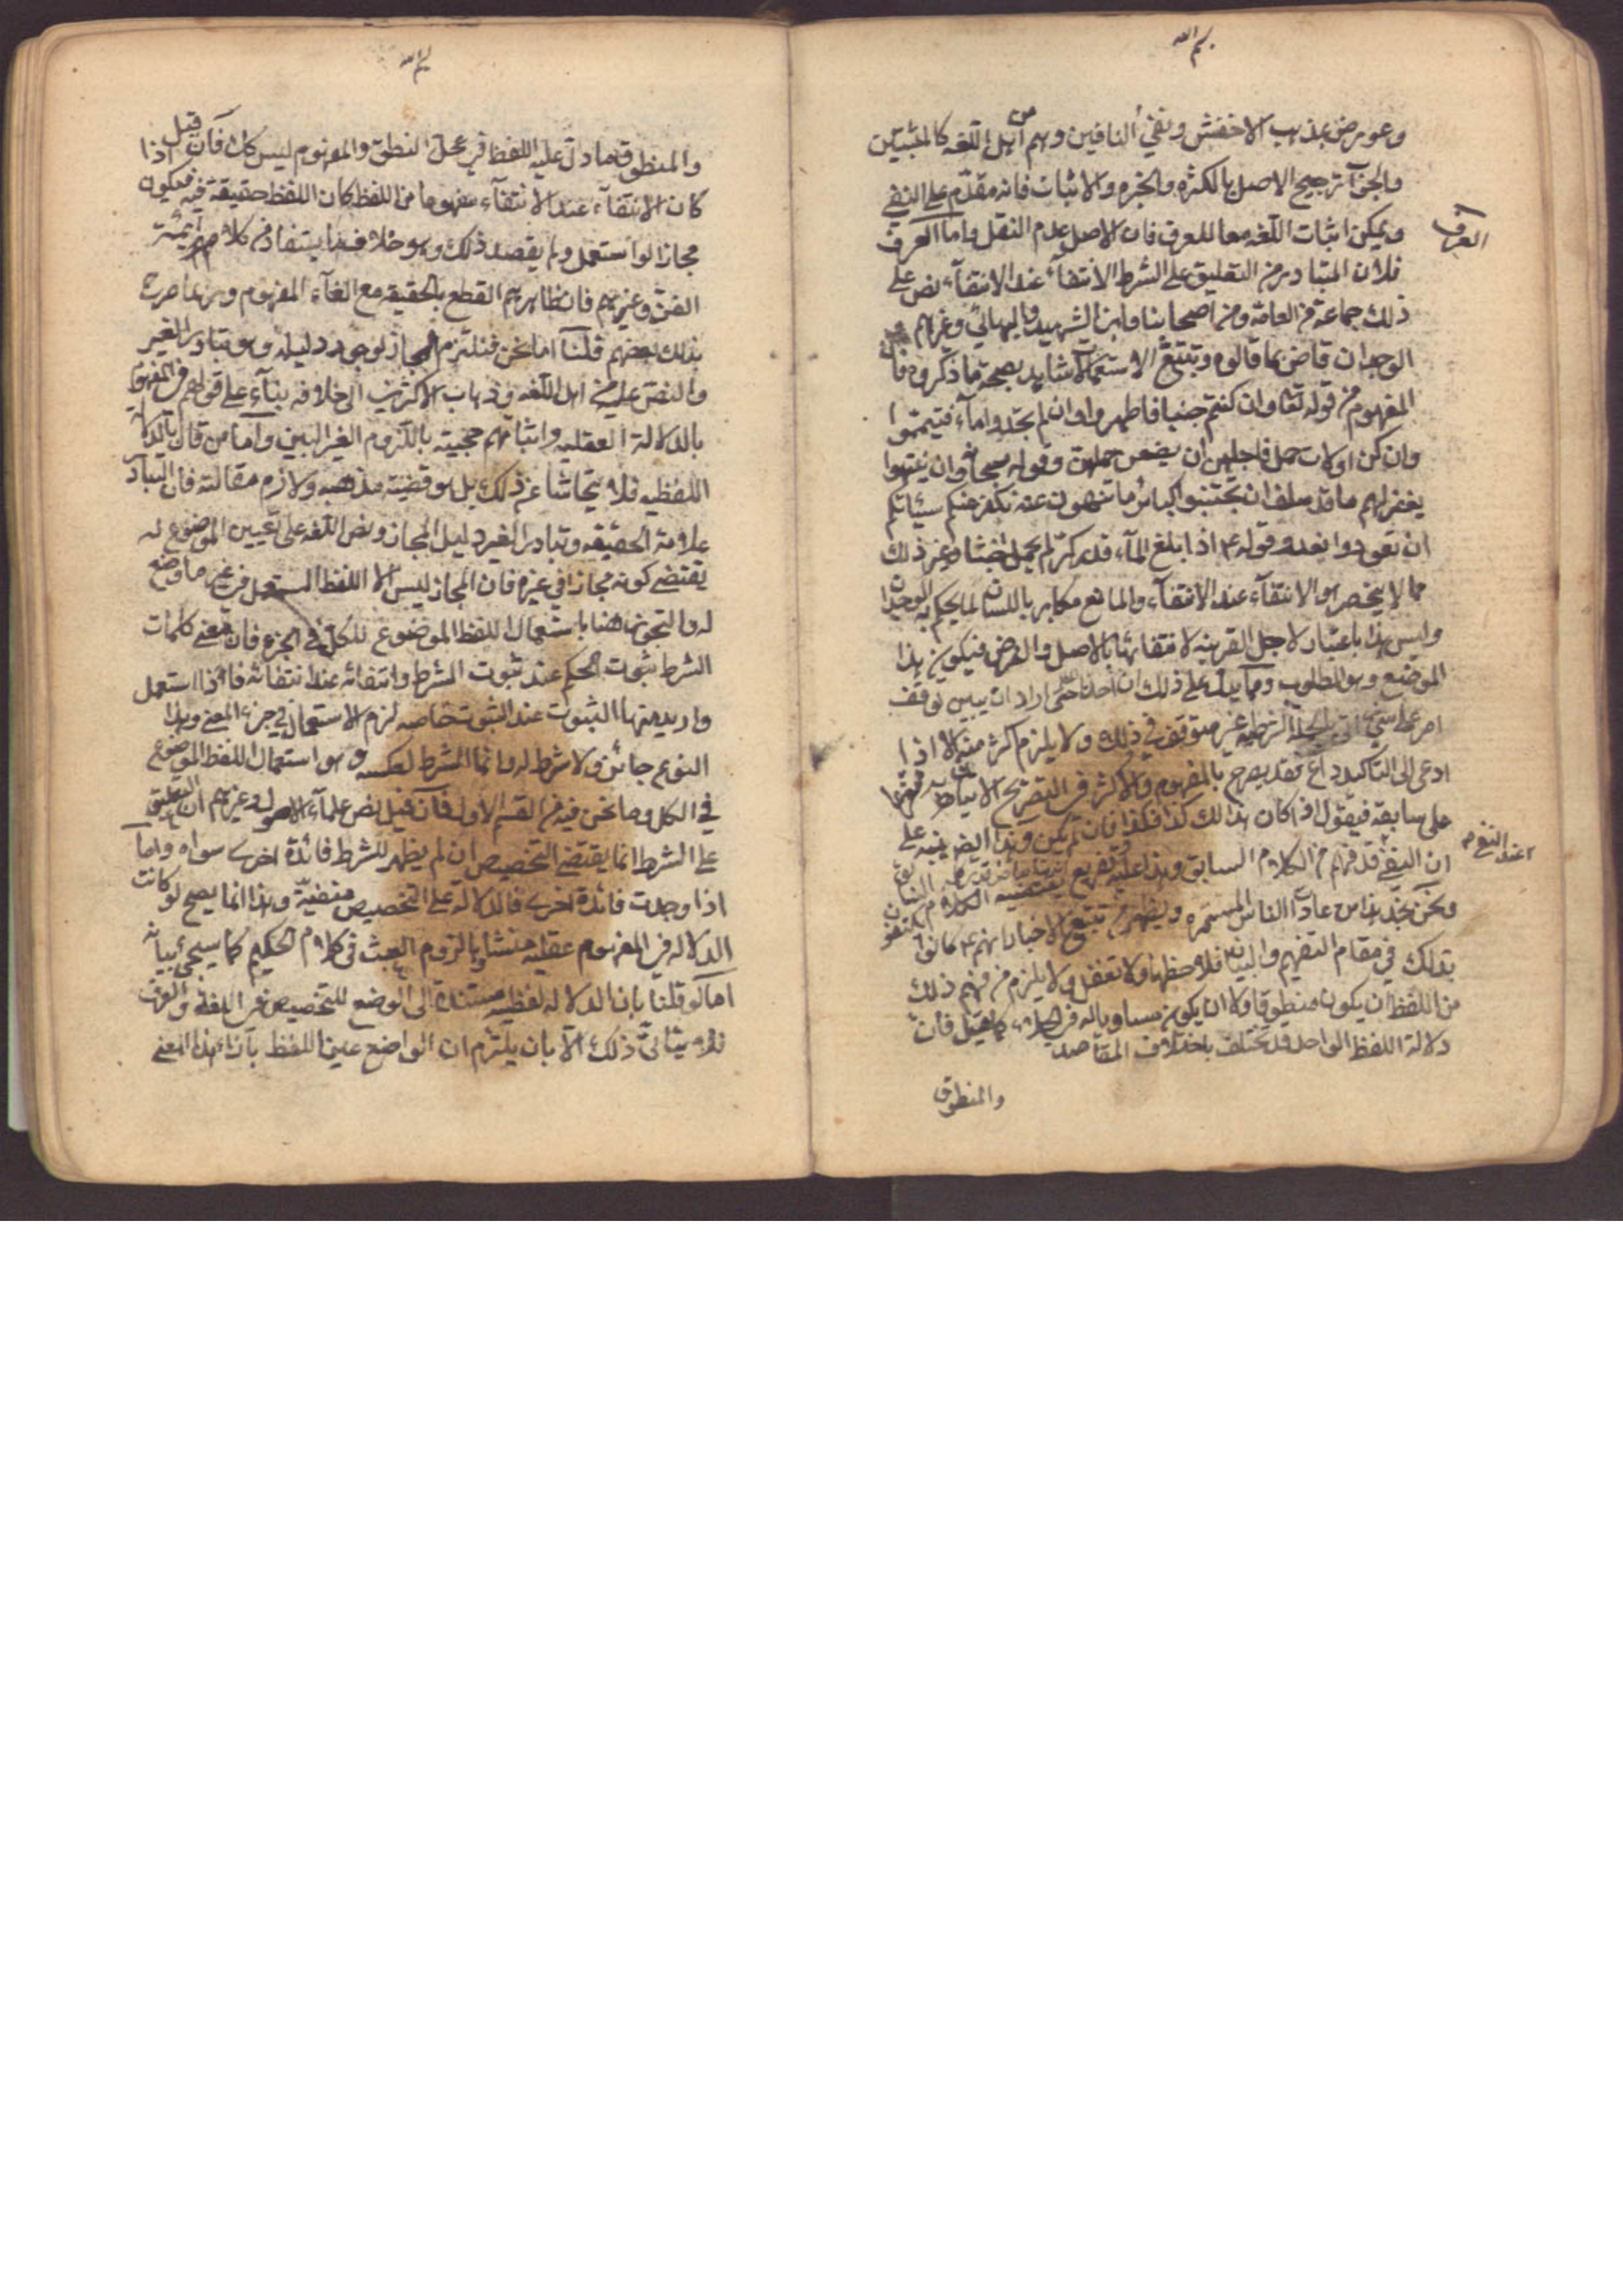 بسم الله
وعورض بمذهب الاخفش ونفي النافين وهم من اهل اللغه كالمثبتين
والجواب ترجيح الاصل بالكثره والاثبات فانه مقدّم على النفي
ويمكن اثبات اللغه معا للعرف فان الاصل عدم النقل واما العرف
العرف
فلان المتبادر من التعليق على الشرط الانتفاء عند الانتفاء نص على
ذلك جماعة من العامّة ومن اصحابنا وابن الشهيد والبهائي وغيرهم
الوجدان قاض بما قالوه وتتبّع الاستعمالات شاهد بصحة ما ذكروه فان
المفهوم من قوله تعا وان كنتم جنبا فاطهروا وان لم تجدوا ماء فتيمّموا
وان كن اولات حمل فاجلهن ان يضعن حملهن وقوله سبحانه وان ينتهوا
يغفر لهم ما قد سلف ان تجتنبوا كبائر ما تنهون عنه نكفر عنكم سيئاتكم
ان تعودوا نعد وقوله ع اذا بلغ الماء قدر كرّ لم يحمل خبثا وغير ذلك
مما لا ينحصر هو الانتفاء عند الانتفاء والمانع مكابر باللسان لما يحكم به الوجدان
وليس هذا باعتبار لاجل القرينه لانتفائها بالاصل والفرض فيكون هذا
الموضع وهو المطلوب ومما يدل على ذلك ان احدنا متى اراد ان يبين توقف
امر على شيء اتى بالجملة الشرطيه غير متوقف في ذلك ولا يلزم اكثر منه الا اذا
ادعى الى التاكيد داع فقد يصرح بالمفهوم والاكثر في التصريح الاتيان به مفرّعا
على سابقه فيقول اذا كان ذلك كذا فكذا فان لم يكن وهذا ايضا ينبه على
ان النفي قد فهم من الكلام السابق وهذا عليه تفريع يقتضيه الكلام
عند القوم
ونحن نجد هذا من عادات الناس المستمره ويظهر من تتبع الاخبار انهم ع كانوا يكتفون
بذلك في مقام التفهيم والبيان فلاحظها ولا تغفل ولا يلزم من فهم ذلك
من اللفظ ان يكون منطوقا ولا ان يكون مساويا له في الجلاء كما قيل فان
دلالة اللفظ الواحد قد تختلف باختلاف المقاصد
والمنطوق
بسم الله
والمنطوق ما دل عليه اللفظ في محل النطق والمفهوم ليس كك فان قيل اذا
كان الانتفاء عند الانتفاء مفهوما من اللفظ كان اللفظ حقيقة فيه فيكون
مجازا لو استعمل ولم يقصد ذلك وهو خلاف ما يستفاد من كلام ائمة
الفنّ وغيرهم فان ظاهرهم القطع بالحقيقه مع الغاء المفهوم وربما صرح
بذلك بعضهم قلنا اما نحن فنلتزم المجاز لوجود دليله وهو تبادر الغير
والنص عليه من اهل اللغه وذهاب الاكثرين الى خلافه بناء على قولهم في المفهوم
بالدلالة العقليه واثباتهم حجيته باللزوم الغير البين واما من قال بالدلالة
اللفظيه فلا يتحاشا عن ذلك بل هو قضية مذهبه ولازم مقالته فان التبادر
علامة الحقيقه وتبادر الغير دليل المجاز ونص اللغه على تعيين الموضوع له
يقتضي كونه مجازا في غيره فان المجاز ليس الا اللفظ المستعمل في غير ما وضع
له والتجوز هنا باستعمال اللفظ الموضوع للكل في الجزء فان معنى كلمات
الشرط ثبوت الحكم عند ثبوت الشرط وانتفائه عند انتفائه فاذا استعمل
واريد منها الثبوت عند الثبوت خاصه لزم الاستعمال في جزء المعنى وهذا
النوع جائز ولا شرط له وانما الشرط لعكسه وهو استعمال اللفظ الموضوع
في الكل وما نحن فيه من القسم الاول فان قيل نص علماء الاصول وغيرهم ان التعليق
على الشرط انما يقتضي التخصيص ان لم يظهر للشرط فائدة اخرى سواه واما
اذا وجدت فائدة اخرى فالدلالة على التخصيص منفيّة وهذا انما يصح لو كانت
الدلاله في المفهوم عقليه منشاؤها لزوم العبث في كلام الحكيم كما سيجئ بيانه
اما لو قلنا بان الدلاله لفظيه مستندة الى الوضع للتخصيص في اللغة والعرف
فلا يتاتى ذلك الا بان يلتزم ان الواضع عين اللفظ بازاء هذا المعنى